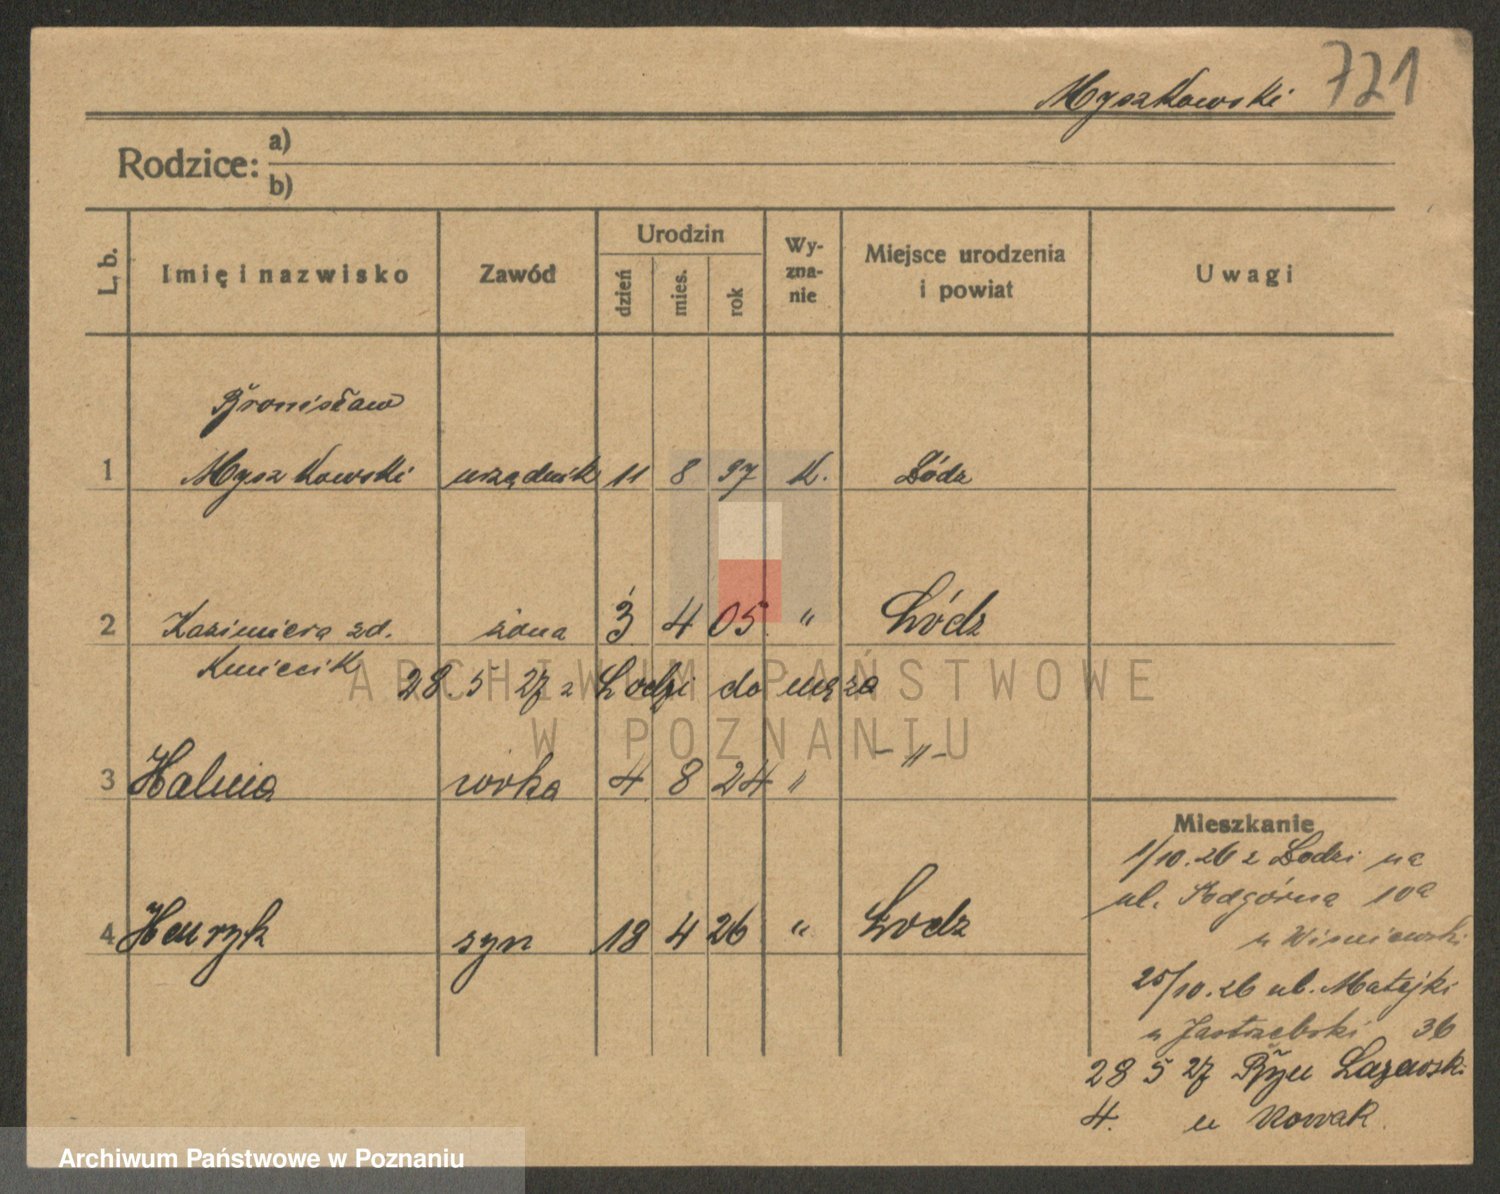 Myszkowski 721
Rodzice: a)
b)
L. b. Imię i nazwisko Zawód Urodzin dzień mies. rok Wy-zna-nie Miejsce urodzenia i powiat Uwagi
Bronisław
1 Myszkowski urzędnik 11 8 97 k. Łódz
2 Kazimiera zd. żona 3 4 05 " Łódz
Kmiecik
28. 5 27 z Łodzi do męża
3 Halina córka 4 8 24 " -"-
Mieszkanie
1/10. 26 z Łodzi na
ul. Podgórną 10a
u Wiśniewski
4 Henryk syn 18 4 26 " Łodz
25/10. 26 ul. Matejki
u Jastrzębski 36
28 5 27 Ryn Łazarsk.
4. u Nowak.
ARCHIWUM PAŃSTWOWE
W POZNANIU
Archiwum Państwowe w Poznaniu